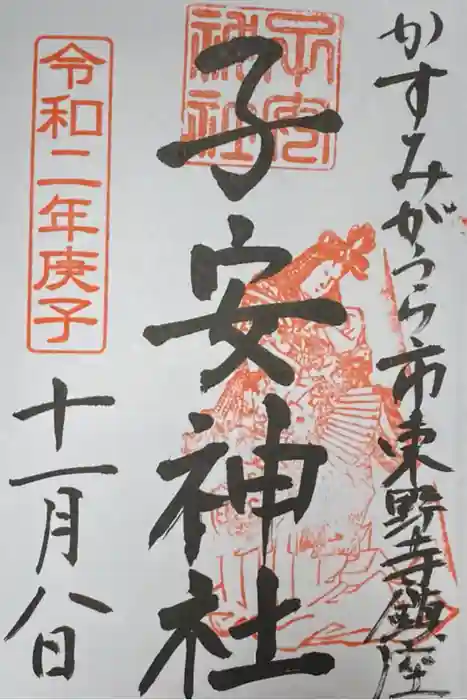 かすみがうら市東野寺鎮座
子安神社
子安神社
令和二年庚子
十一月八日